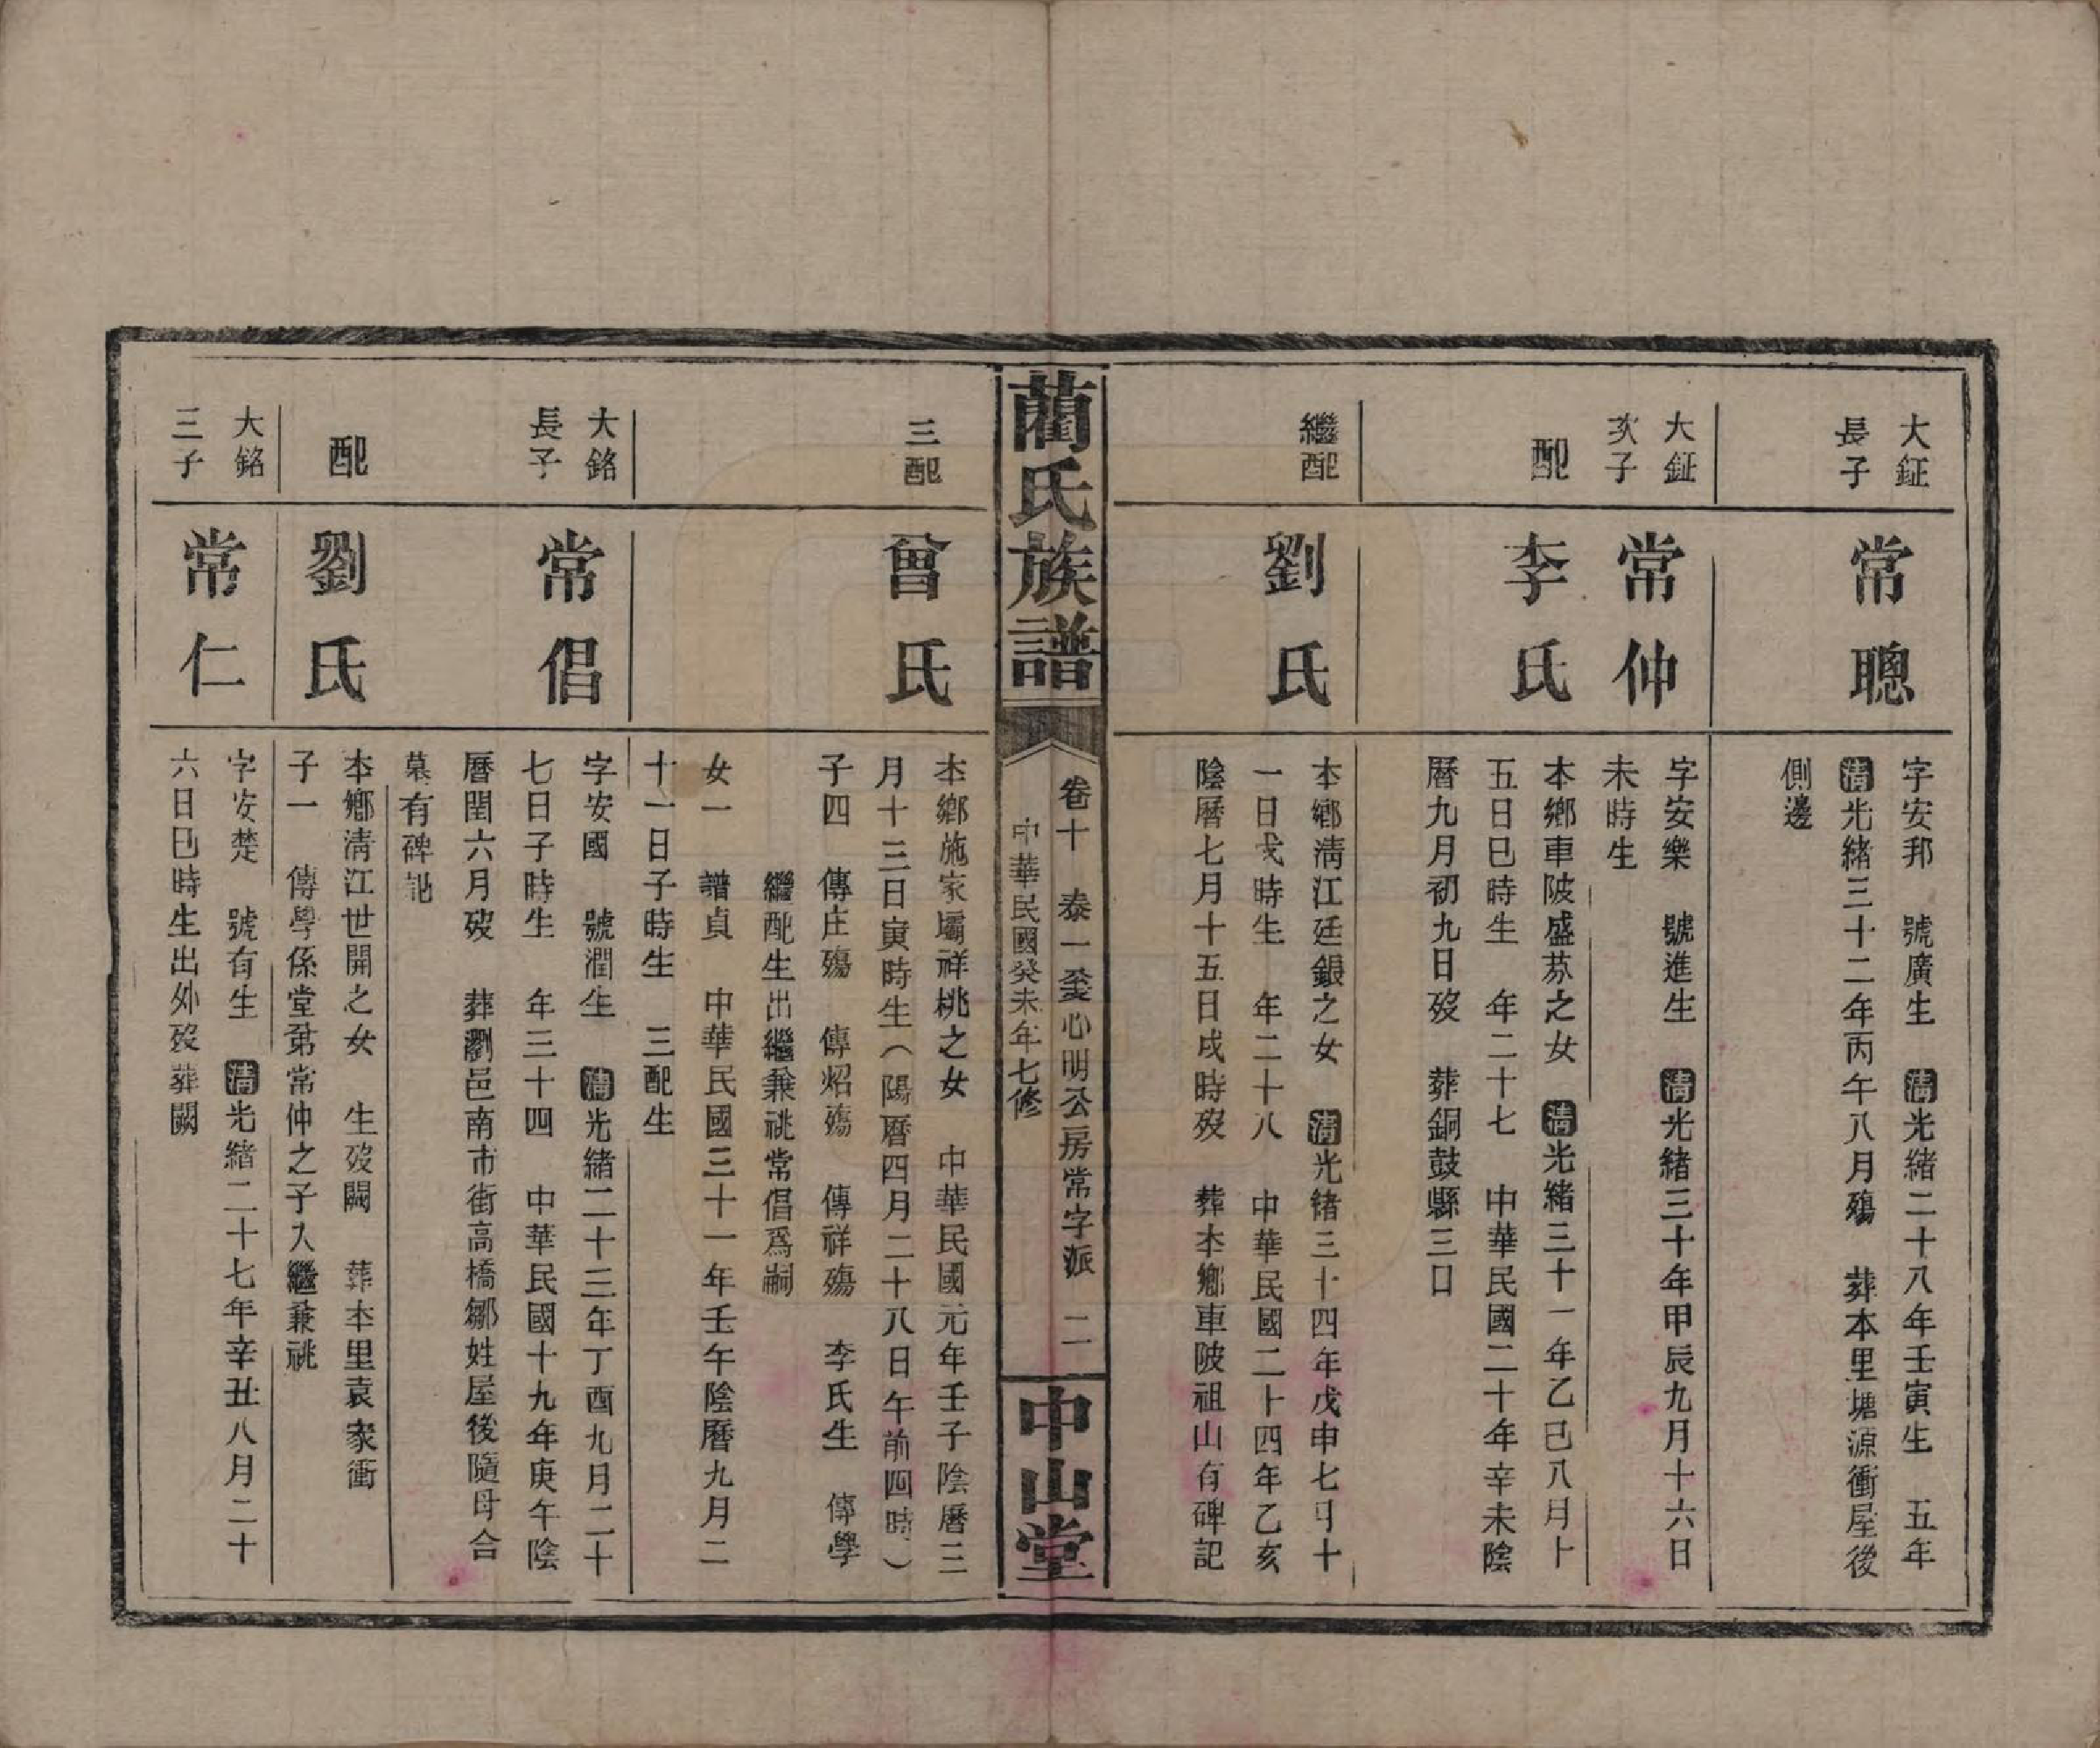 大鉦
長子
常聰
字安邦　號廣生　清光緒二十八年壬寅生　五年
清光緒三十二年丙午八月殤　葬本里塘源衝屋後
側邊
大鉦
次子
常仲
字安樂　號進生　清光緒三十年甲辰九月十六日
未時生
配
李氏
本鄉車陂盛芬之女　清光緒三十一年乙巳八月十
五日巳時生　年二十七　中華民國二十年辛未陰
曆九月初九日歿　葬銅鼓縣三口
繼配
劉氏
本鄉清江廷銀之女　清光緒三十四年戊申七月十
一日戌時生　年二十八　中華民國二十四年乙亥
陰曆七月十五日戌時歿　葬本鄉車陂祖山有碑記
藺氏族譜
卷十　泰一　心明公房常字派　二
中華民國癸未年七修
中山堂
三配
曾氏
本鄉施家壩祥桃之女　中華民國元年壬子陰曆三
月十三日寅時生（陽曆四月二十八日午前四時）
子四　傳庄殤　傳炤殤　傳祥殤　李氏生　傳學
繼配生出繼兼祧常倡爲嗣
女一　譜貞　中華民國三十一年壬午陰曆九月二
十一日子時生　三配生
大銘
長子
常倡
字安國　號潤生　清光緒二十三年丁酉九月二十
七日子時生　年三十四　中華民國十九年庚午陰
曆閏六月歿　葬瀏邑南市街高橋鄒姓屋後隨母合
墓有碑記
配
劉氏
本鄉清江世開之女　生歿闕　葬本里袁家衝
子一　傳學係堂弟常仲之子入繼兼祧
大銘
三子
常仁
字安楚　號有生　清光緒二十七年辛丑八月二十
六日巳時生出外歿葬闕